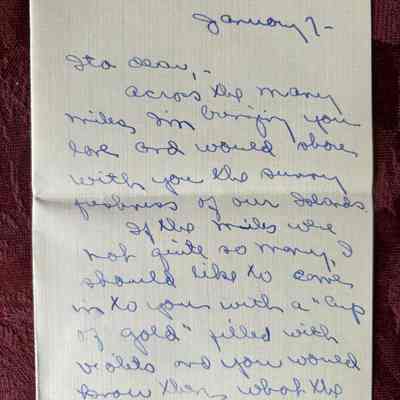 January 7-
Ita dear,-
across the many
miles I'm bringing you
love and would share
with you the sunny
freshness of our Islands.
If the miles were
not quite so many, I
should like to come
in to you with a "Cup
of gold" filled with
violets and you would
know then what the